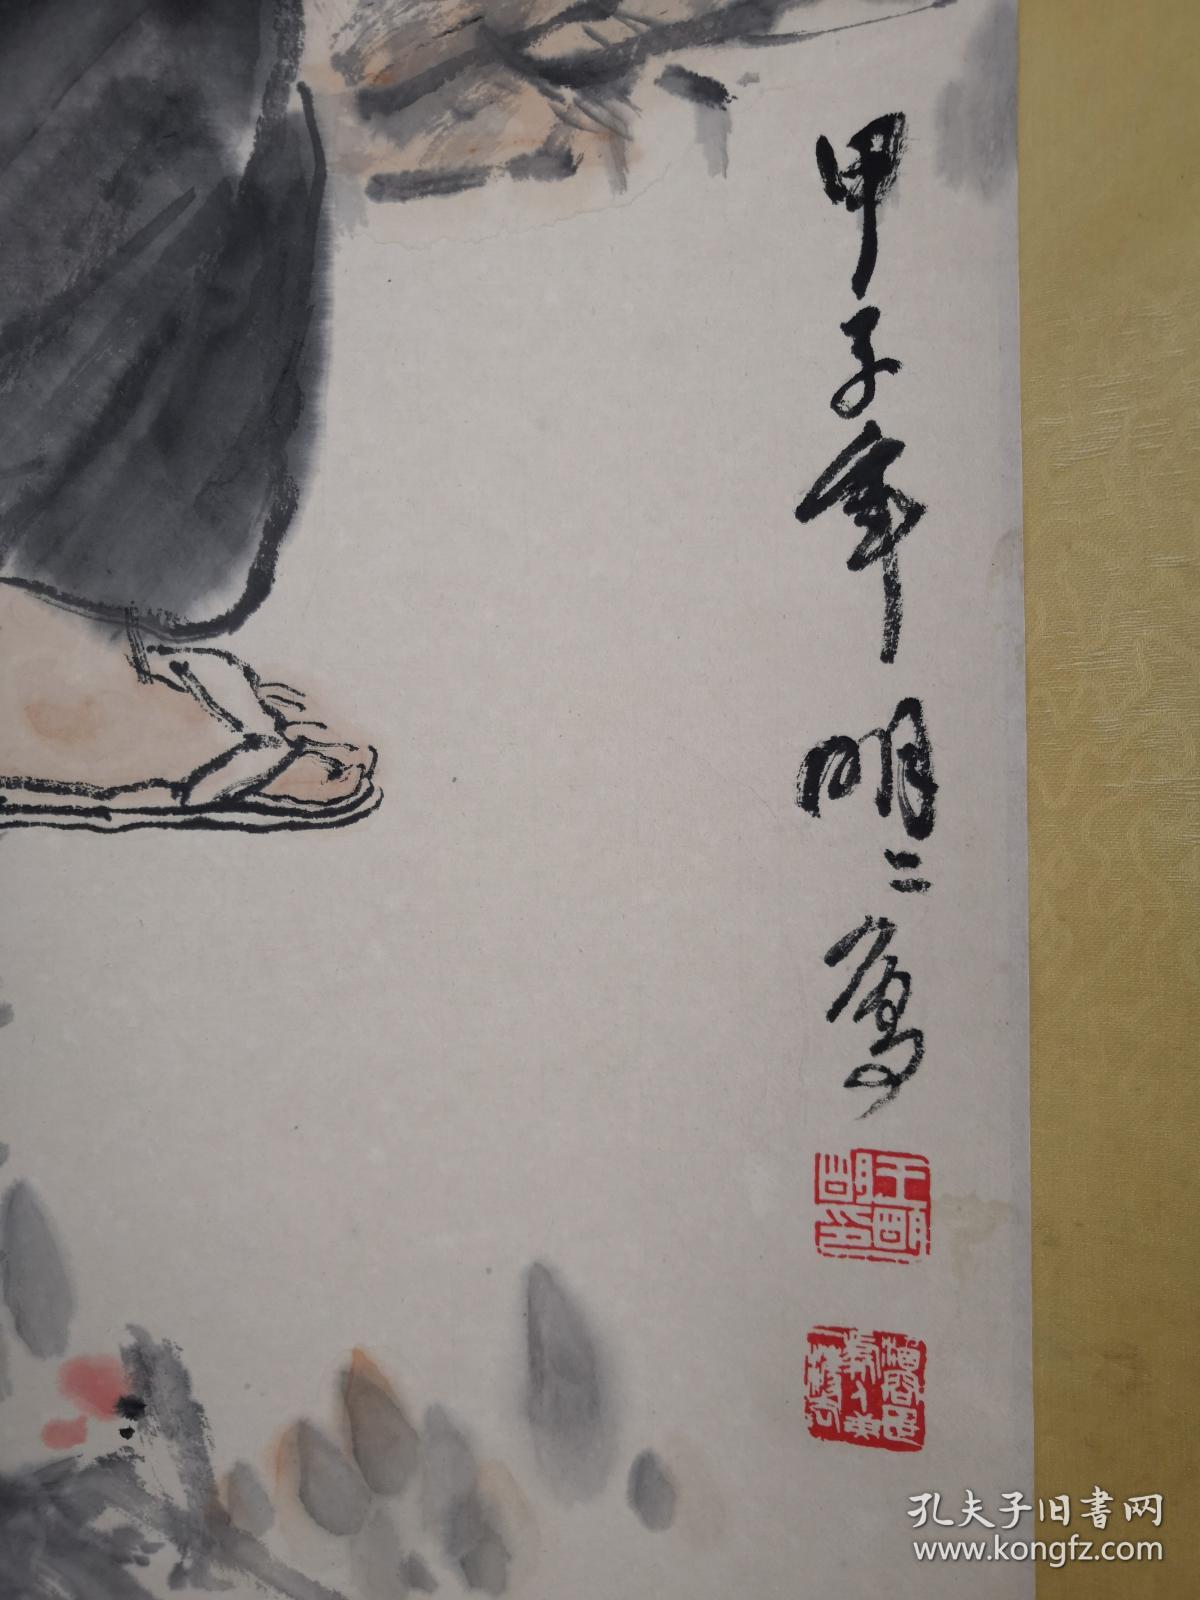 甲子年 明二寫
王明明印
孔夫子旧书网
www.kongfz.com